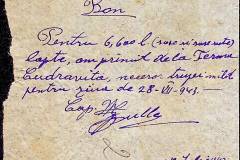 Bon
Pentru 6,600 l (șase și șase sute)
lapte, am primit de la Ferma
Cudravita, neces. trupei mît
pentru ziua de 28-VII-943.
Cap.